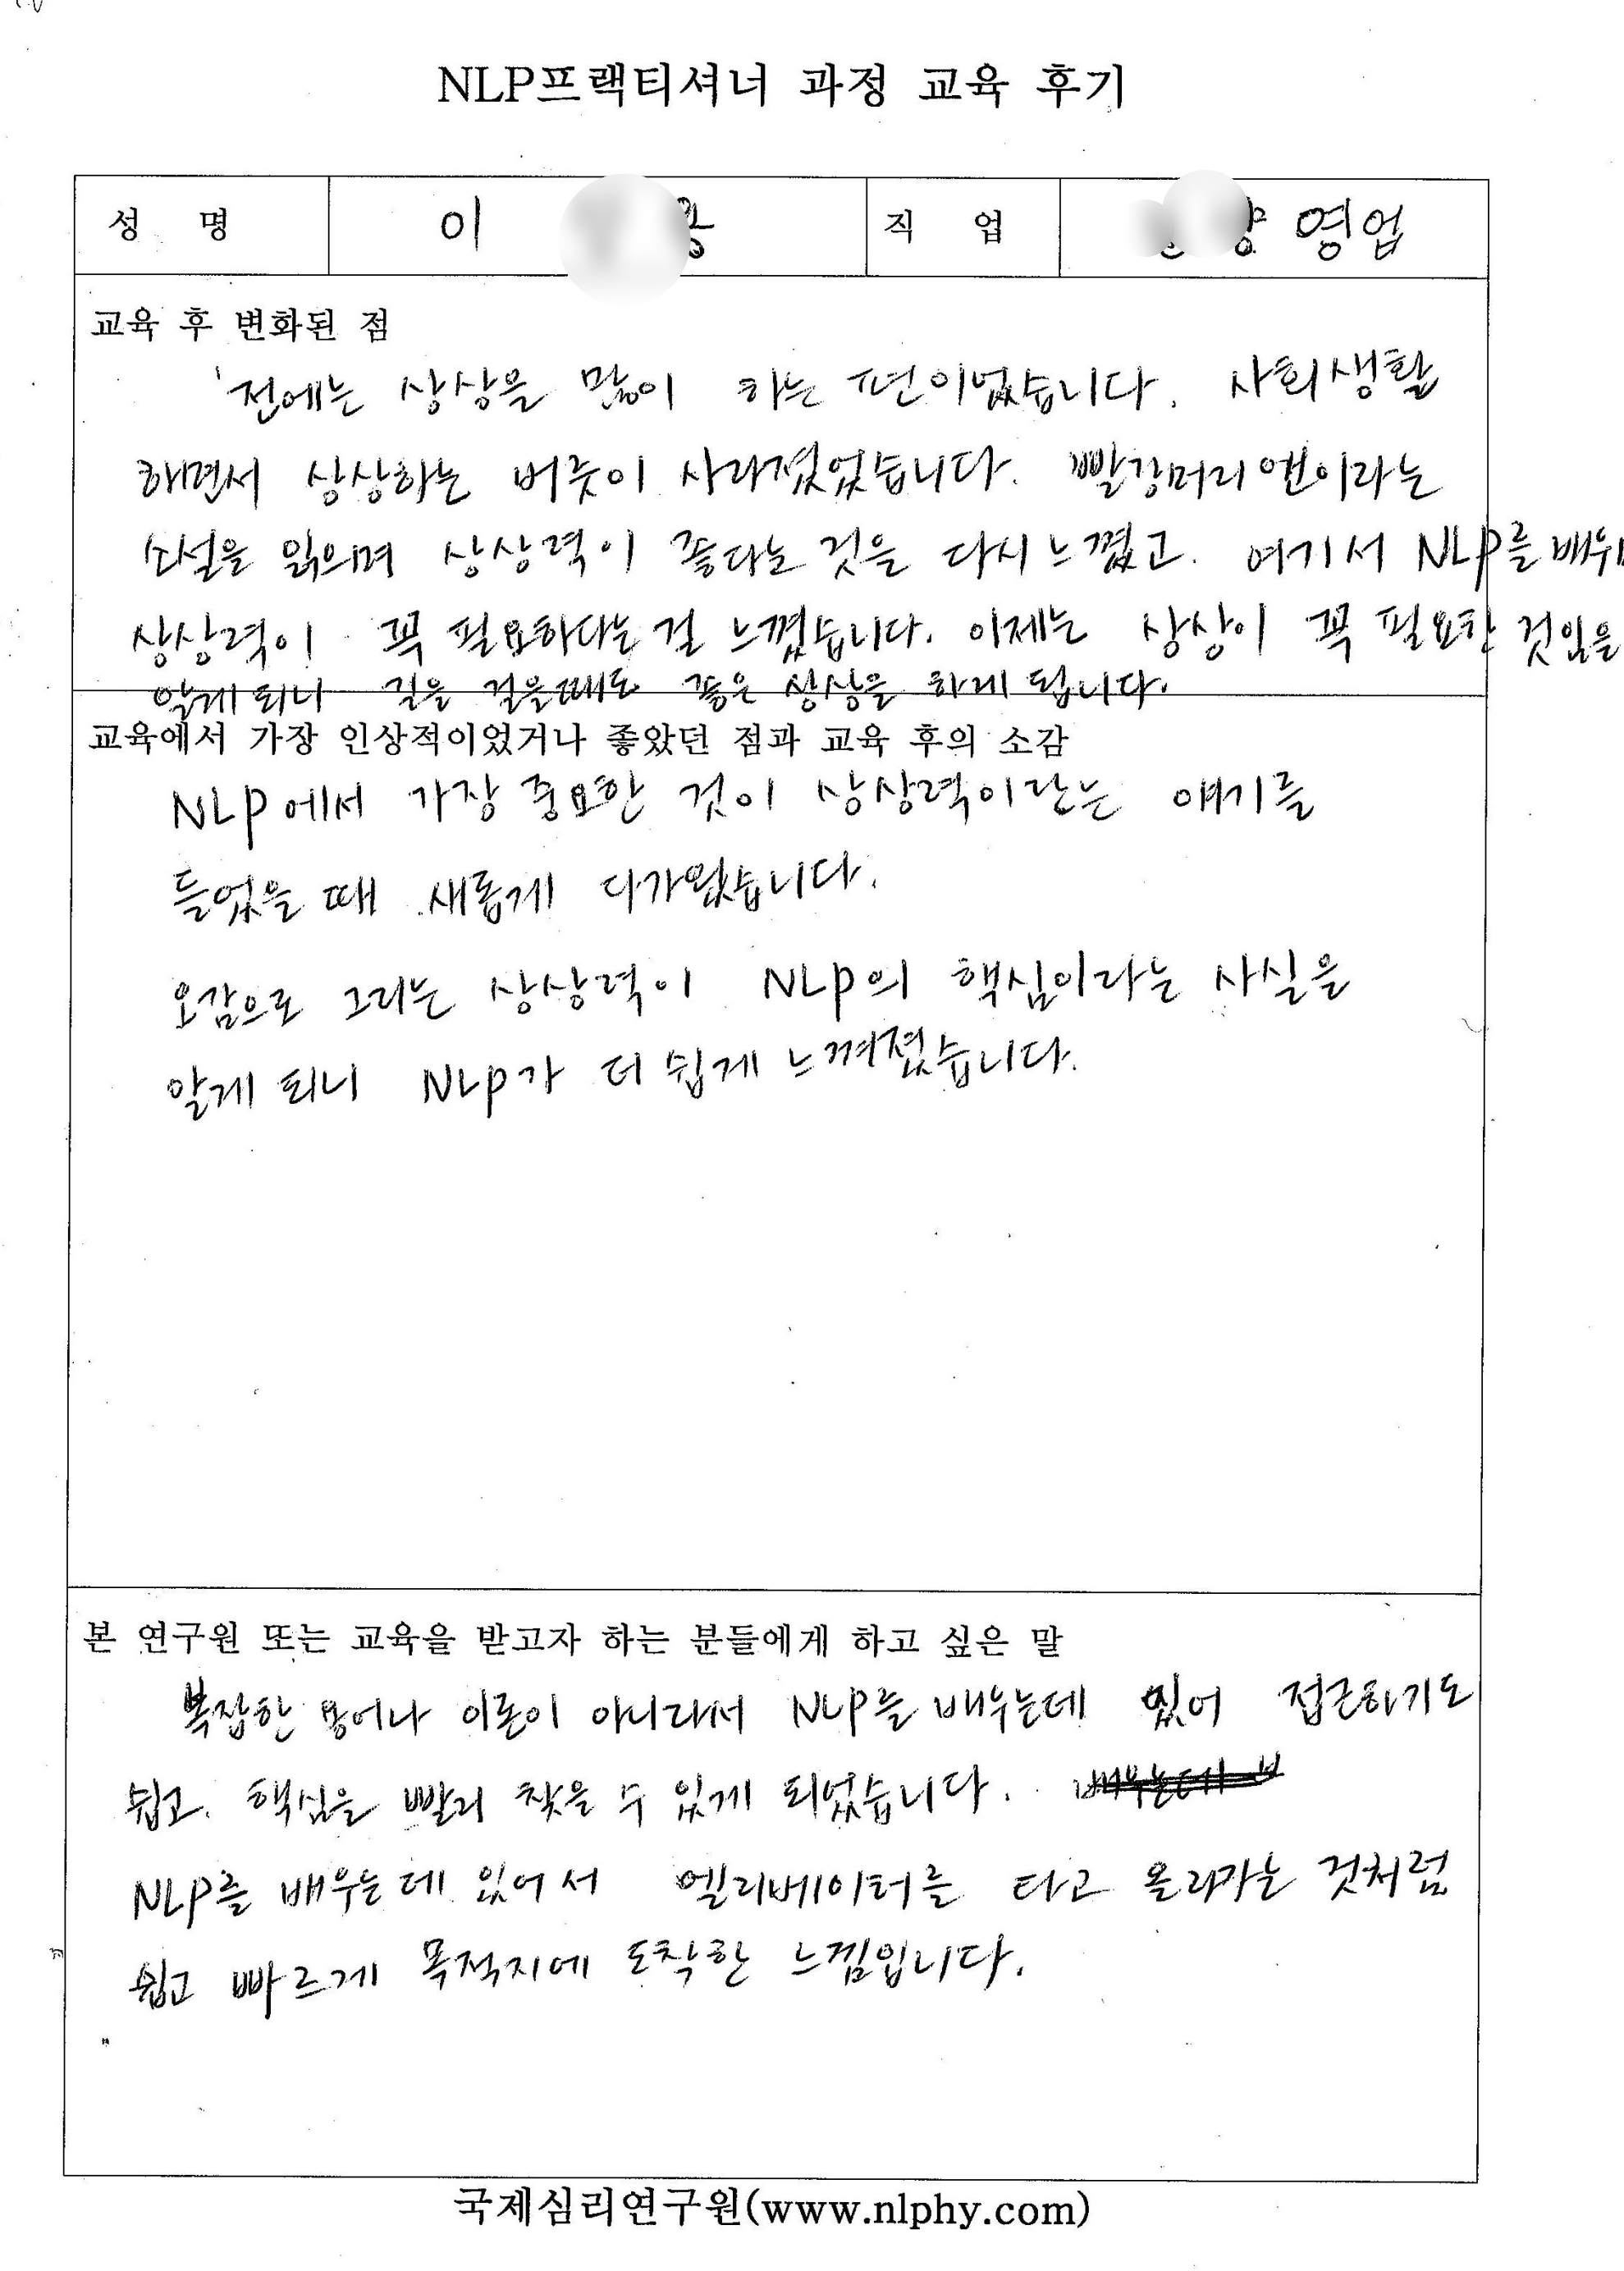 NLP프랙티셔너 과정 교육 후기
성 명 이 직 업 영업
교육 후 변화된 점
전에는 상상을 많이 하는 편이었습니다. 사회생활
해면서 상상하는 버릇이 사라졌었습니다. 빨강머리앤이라는
소설을 읽으며 상상력이 좋다는 것을 다시 느꼈고. 여기서 NLP를 배우며
상상력이 꼭 필요하다는 걸 느꼈습니다. 이제는 상상이 꼭 필요한 것임을
알게 되니 길을 걸을때도 좋은 상상을 하게 됩니다.
교육에서 가장 인상적이었거나 좋았던 점과 교육 후의 소감
NLP에서 가장 중요한 것이 상상력이란는 얘기를
들었을 때 새롭게 다가왔습니다.
오감으로 그리는 상상력이 NLP의 핵심이라는 사실을
알게 되니 NLP가 더 쉽게 느껴졌습니다.
본 연구원 또는 교육을 받고자 하는 분들에게 하고 싶은 말
복잡한 용어나 이론이 아니라서 NLP를 배우는데 있어 접근하기도
쉽고. 핵심을 빨리 찾을 수 있게 되었습니다.
NLP를 배우는데 있어서 엘리베이터를 타고 올라가는 것처럼
쉽고 빠르게 목적지에 도착한 느낌입니다.
국제심리연구원(www.nlphy.com)